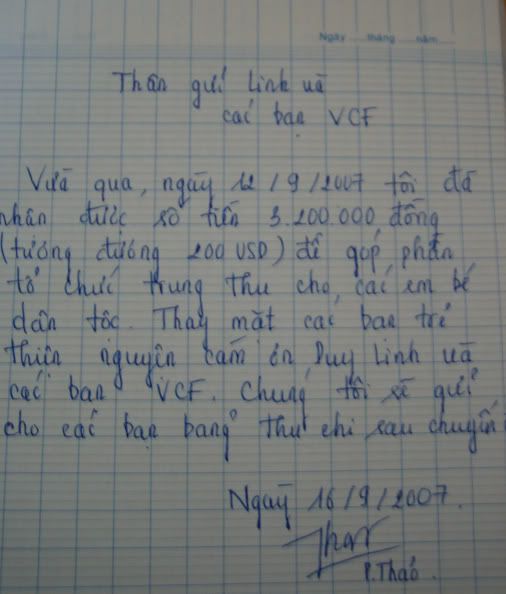 Ngày tháng năm
Thân gửi Linh và
các bạn VCF
Vừa qua, ngày 12/9/2007 tôi đã
nhận được số tiền 3.200.000 đồng
(tương đương 200 USD) để góp phần
tổ chức trung thu cho các em bé
dân tộc. Thay mặt các bạn trẻ
thiện nguyện cảm ơn Duy Linh và
các bạn VCF. Chúng tôi sẽ gửi
cho các bạn bảng thu chi sau chuyến
Ngày 16/9/2007.
P.Thảo.